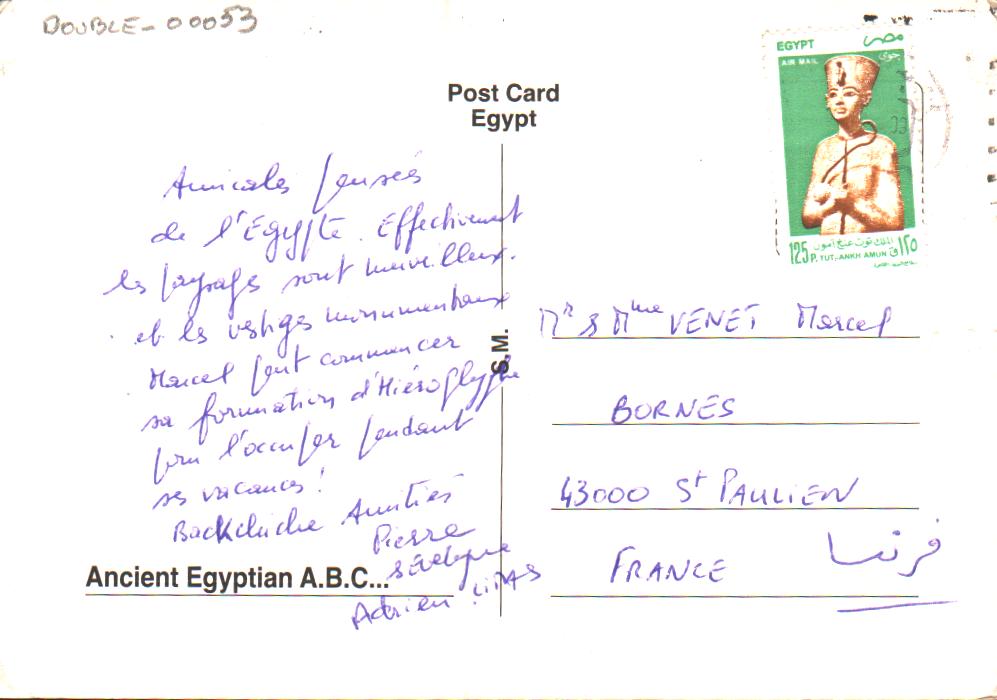 DOUBLE-00053
Post Card
Egypt
EGYPT مصر
AIR MAIL جوي
الملك توت عنخ آمون
125 P. TUT-ANKH AMUN ١٢٥
Amicales pensées
de l'Egypte. Effectivement
les paysages sont merveilleux.
et les vestiges monumentaux
Marcel peut commencer
sa formation d'Hiéroglyphe
pour l'occuper pendant
ses vacances!
Backchiche Amitiés
Pierre
Adrien
Ancient Egyptian A.B.C...
S.M.
Mr & Mme VENET Marcel
BORNES
43000 St PAULIEN
FRANCE فرنسا